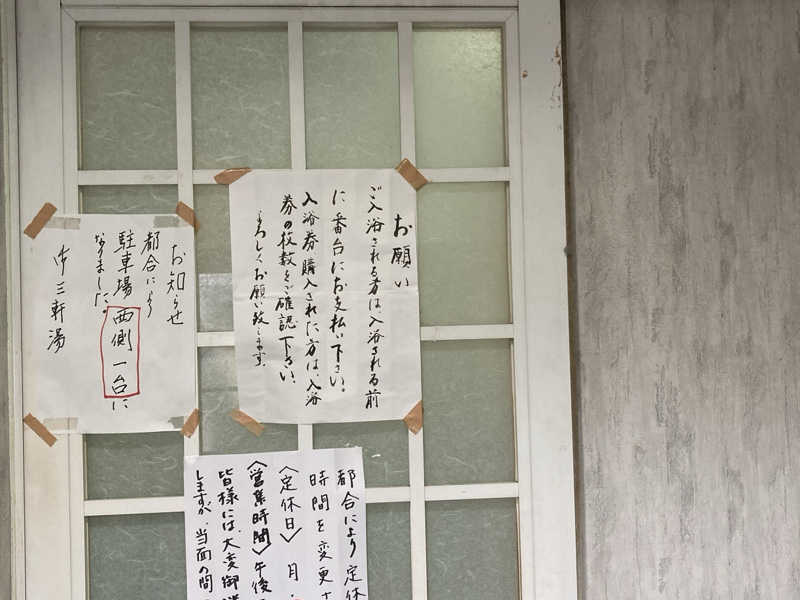 お願い
ご入浴される方は、入浴される前
に番台にお支払い下さい。
入浴券購入された方は、入浴
券の枚数をご確認下さい。
よろしくお願い致します。
お知らせ
都合により
駐車場西側一台に
なりました。
中三軒湯
都合により定休
時間を変更
〈定休日〉月・
〈営業時間〉午後
皆様には、大変御迷
しますが、当面の間